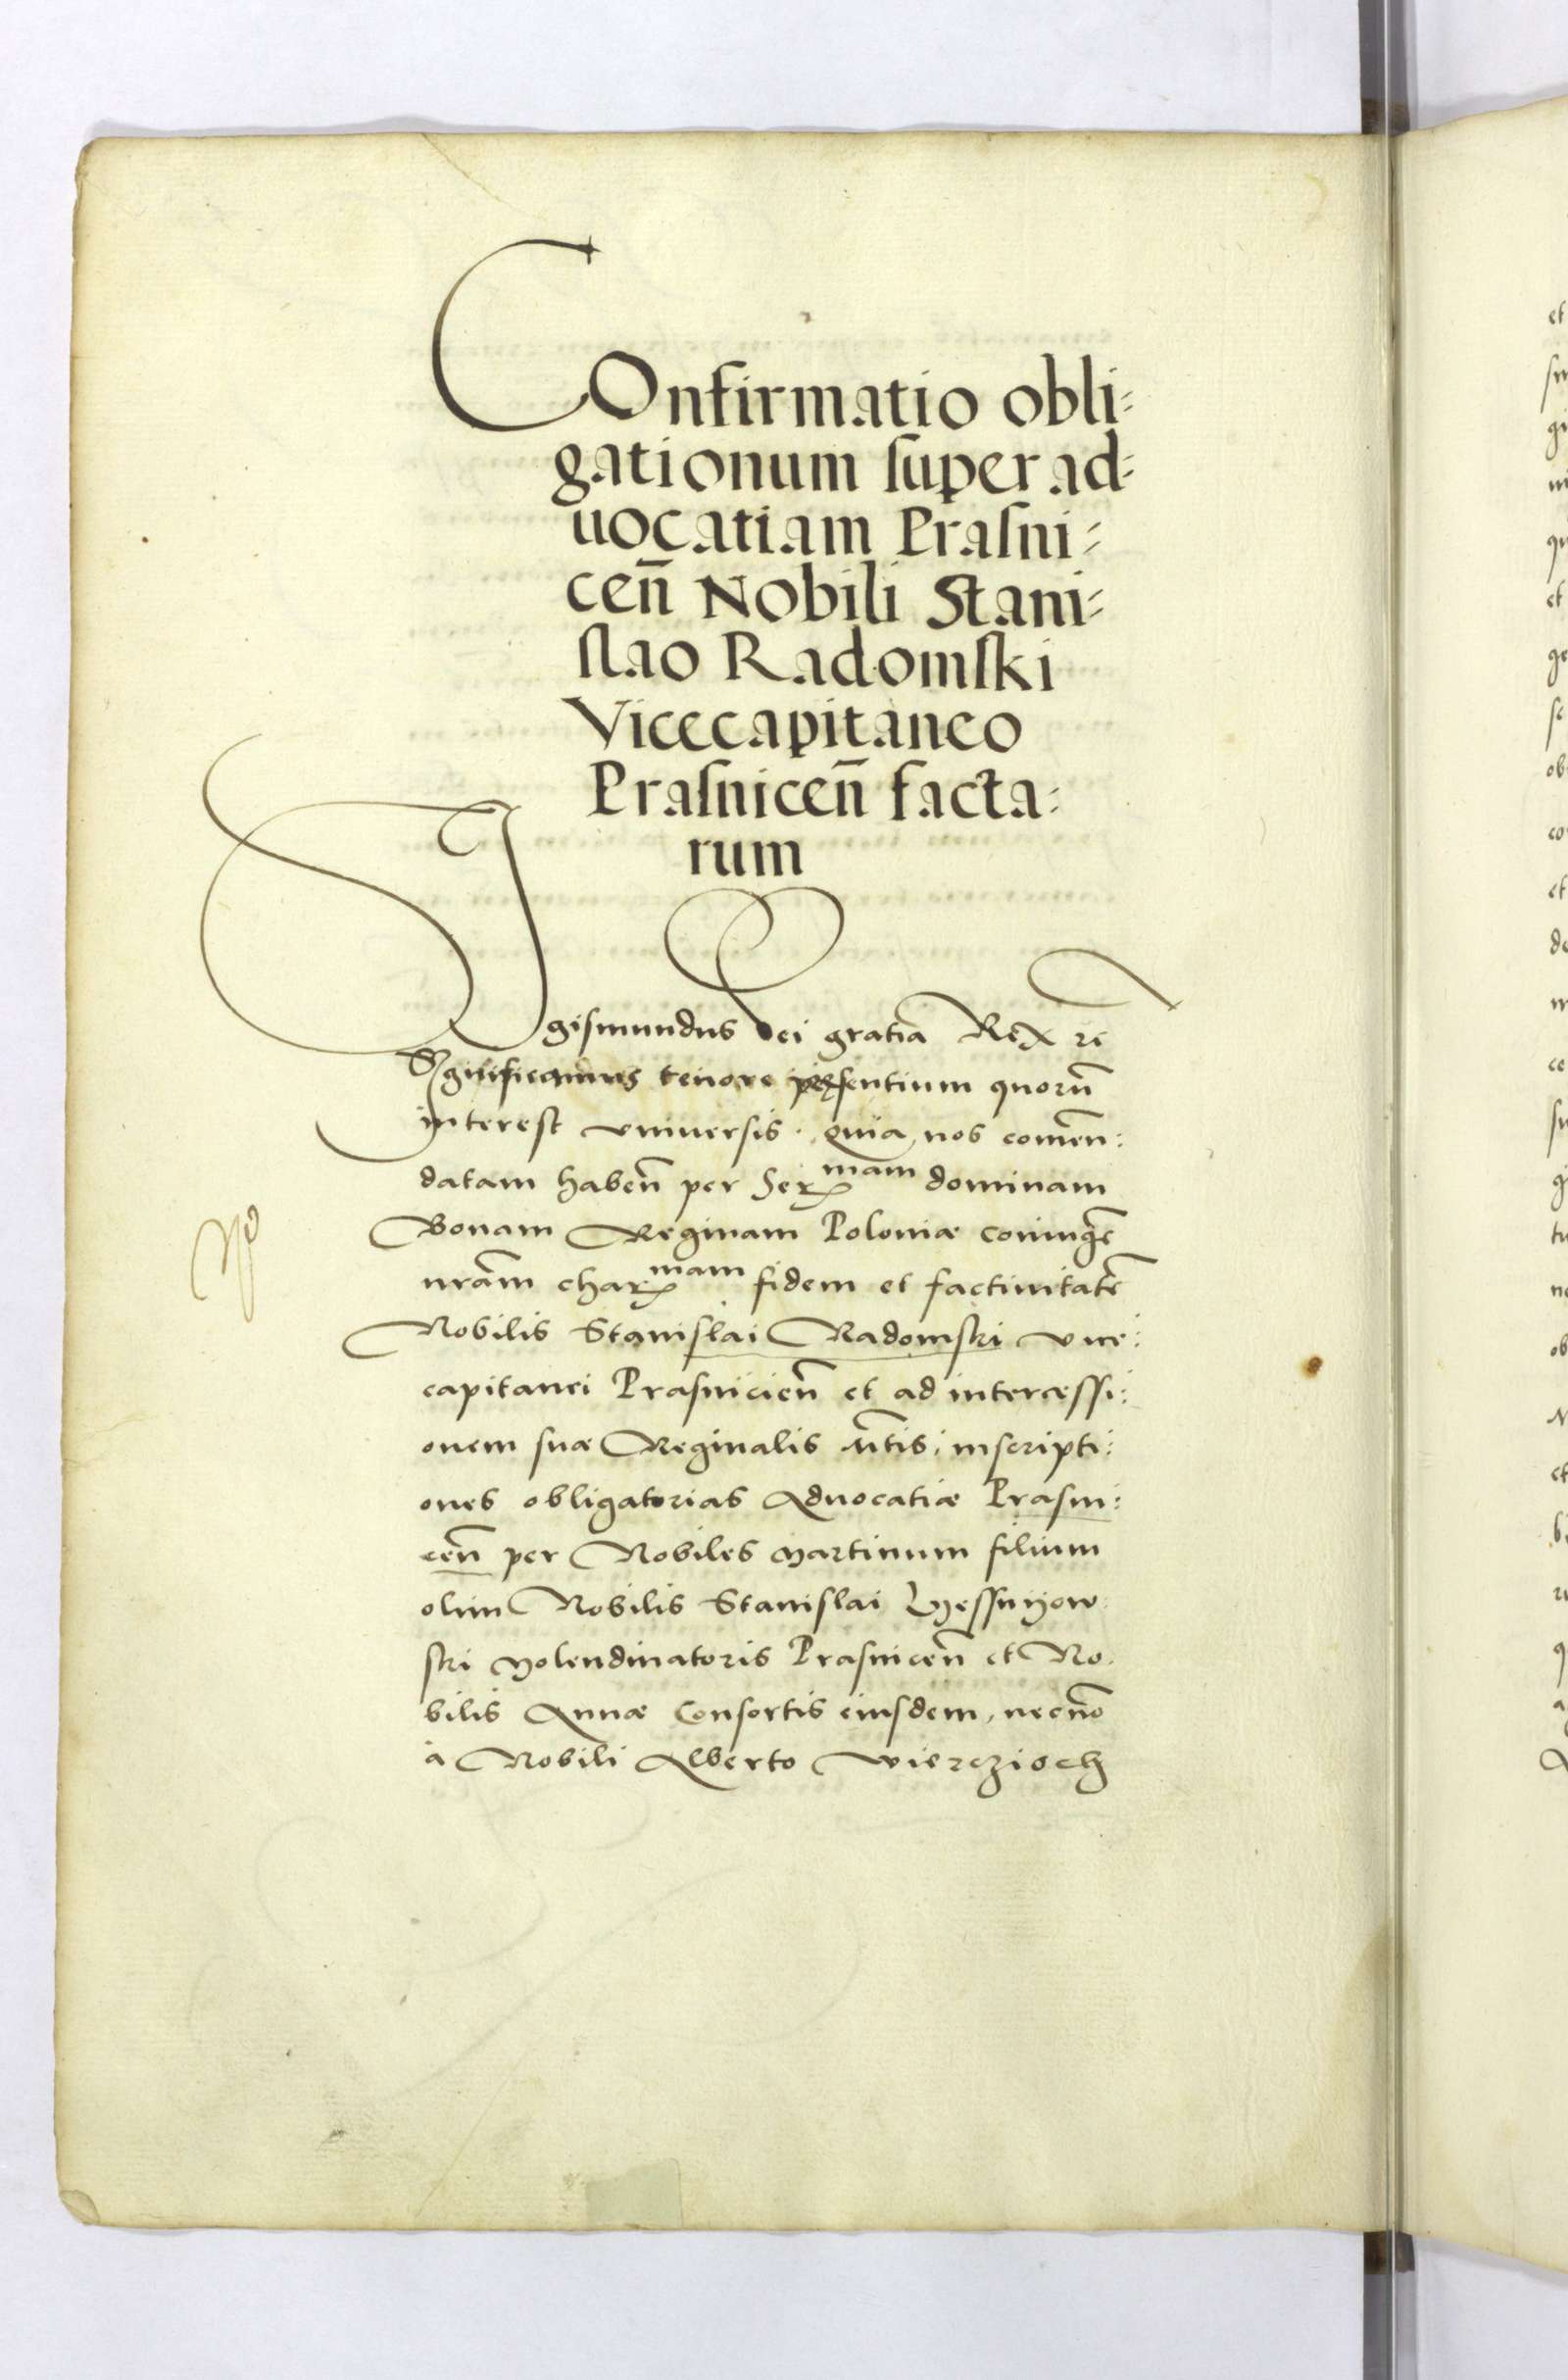 COnfirmatio obli⸗
gationum super ad⸗
uocatiam Prasni⸗
cen̄ Nobili Stani⸗
slao Radomski
Vicecapitaneo
Prasnicen̄ facta⸗
rum
Sigismundus Dei gratia Rex ꝛc
Significamus tenore pręsentium quorū
interest vniuersis. Quia nos comēn:
datam habeñ per Ser mam dominam
Bonam Reginam Poloniæ coniugē
nrām char mam fidem et factiuitatē
Nobilis Stanislai Radomski vice:
capitanei Prasnicieñ et ad intercessi:
onem suæ Reginalis M̄tis, inscripti:
ones obligatorias Aduocatiæ Prasni:
ceñ per Nobiles Martinum filium
olim Nobilis Stanislai
ski Molendinatoris Prasniceñ et No.
bilis Annæ Consortis eiusdem, necnō
a Nobili Alberto vierczioch